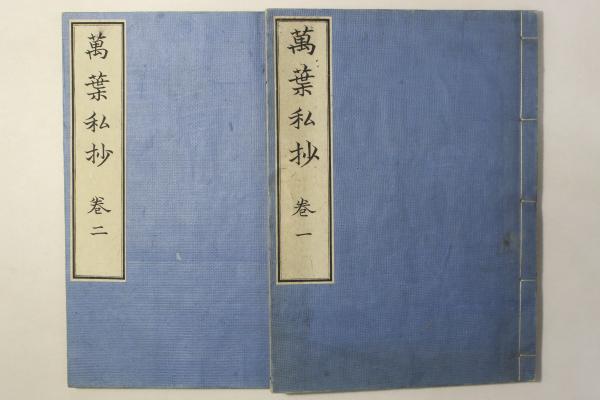 萬葉私抄 卷一
萬葉私抄 卷二